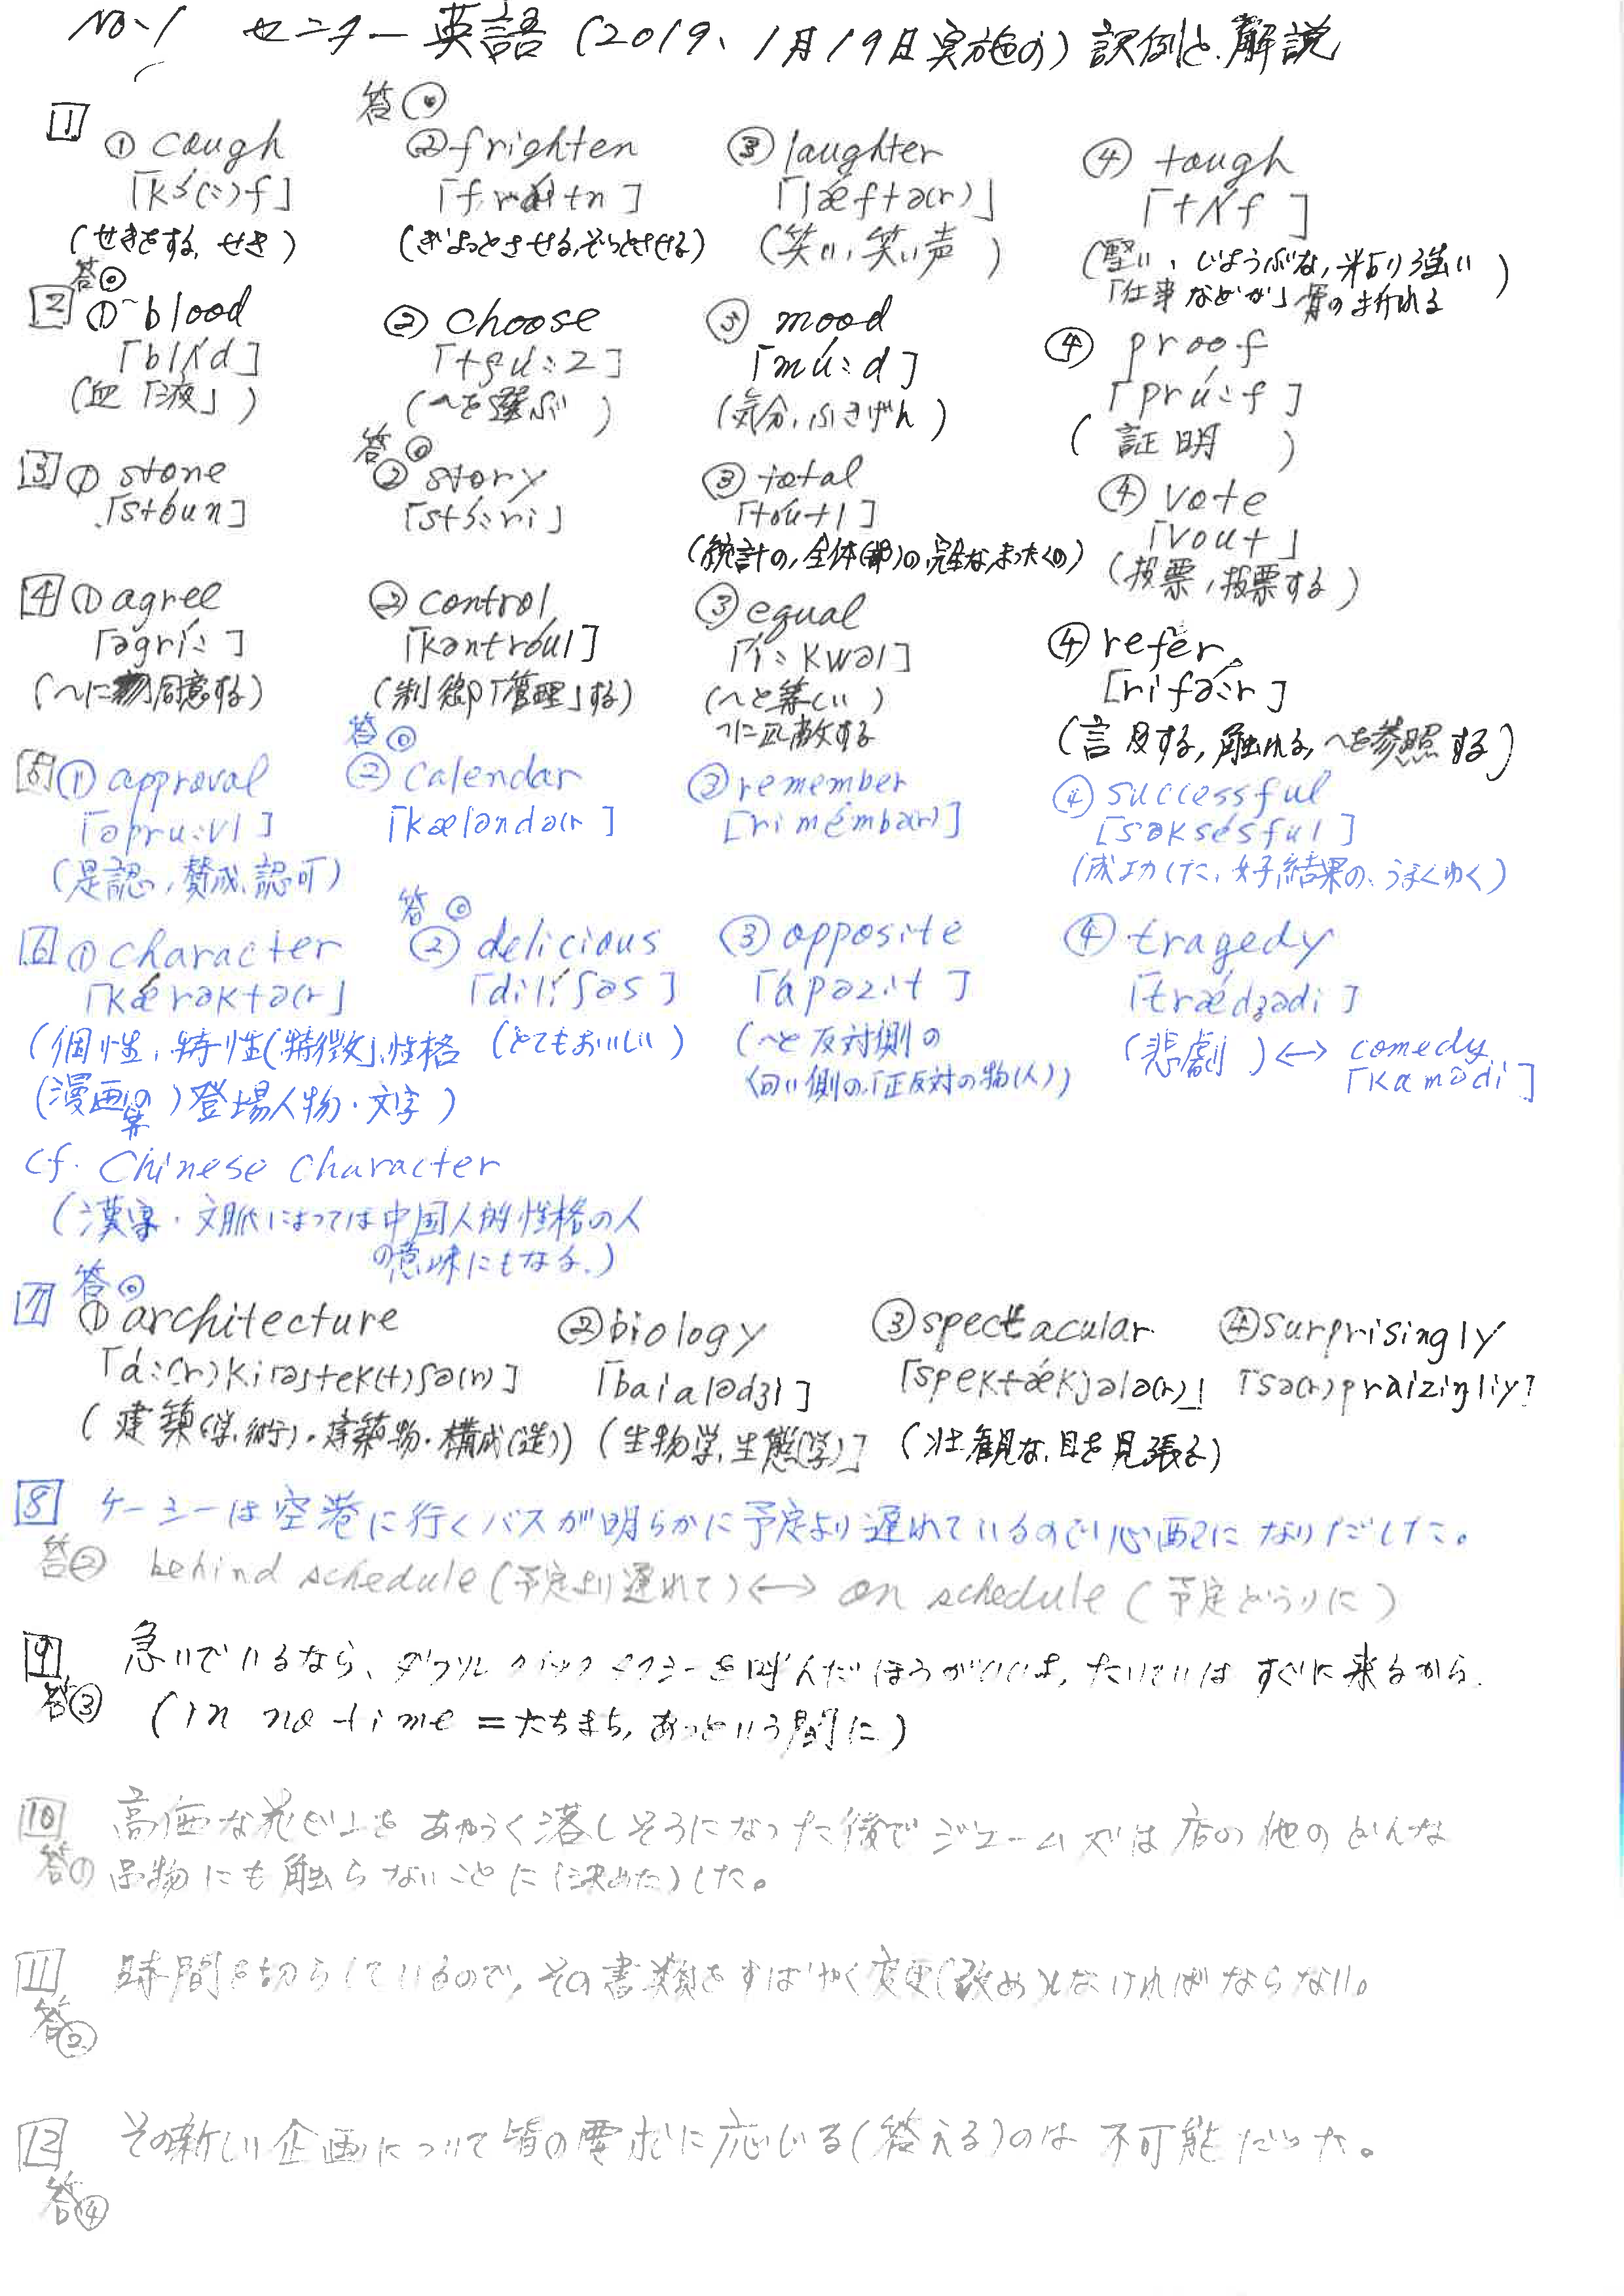 No.1 センター英語(2019、1月19日実施の)訳例と解説
答◎
1 ① cough ② frighten ③ laughter ④ tough
「kɔ́(ː)f] 「fráitn] 「lǽftə(r)」 「tʌ́f]
(せきをする、せき) (ぎょっとさせる,ぞっとさせる) (笑い,笑い声) (堅い、じょうぶな,粘り強い)
「仕事などが」骨の折れる
答◎
2 ① blood ② choose ③ mood ④ proof
「blʌ́d] 「tʃúːz] 「múːd] 「prúːf]
(血「液」) (〜を選ぶ) (気分,ふきげん) (証明)
答◎
3 ① stone ② story ③ total ④ vote
「stóun] 「stɔ́ːri」 「tóutl] 「vout」
(統計の,全体(部)の,完全な,まったくの) (投票,投票する)
4 ① agree ② control ③ equal ④ refer
「əgríː] 「kəntróul] 「íːkwəl] [rifə́ːr]
(〜に同意する) (制御「管理」する) (〜と等しい) (言及する,触れる,〜を参照する)
〜に匹敵する
答◎
5 ① approval ② calendar ③ remember ④ successful
「əpruːvl] 「kæləndə(r] [rimémbə(r)] [səksésful]
(是認,賛成,認可) (成功した,好結果の、うまくゆく)
答◎
6 ① character ② delicious ③ opposite ④ tragedy
「kǽrəktə(r」 「dilíʃəs] 「ápəzit] 「trǽdʒədi]
(個性,特性(特徴」,性格 (とてもおいしい) (〜と反対側の (悲劇) ↔ comedy
(漫画の等)登場人物・文字) 向い側の,「正反対の物(人)) 「kamədi]
cf. Chinese character
(漢字・文脈によっては中国人的性格の人
の意味にもなる.)
答◎
7 ① architecture ② biology ③ spectacular ④ surprisingly
「áː(r)kitek(t)ʃə(r)] 「baialədʒi] 「spektǽkjələ(r)」 「sə(r)praiziŋliy]
(建築(学,術)・建築物・構成(造)) (生物学,生態(学)] (壮観な,目を見張る)
8 ケーシーは空港に行くバスが明らかに予定より遅れているので心配になりだした。
答② behind schedule (予定より遅れて) ↔ on schedule (予定どうりに)
9 急いでいるなら、ダブルクリックタクシーを呼んだほうがいいよ,たいていはすぐに来るから.
答③ (in no time =たちまち,あっという間に)
10 高価な花ビンをあやうく落しそうになった後でジェームズは店の他のどんな
答① 品物にも触らないことに(決めた)した。
11 時間を切らしているので,その書類をすばやく変更(改め)しなければならない。
答②
12 その新しい企画について皆の要求に応じる(答える)のは不可能だった。
答④